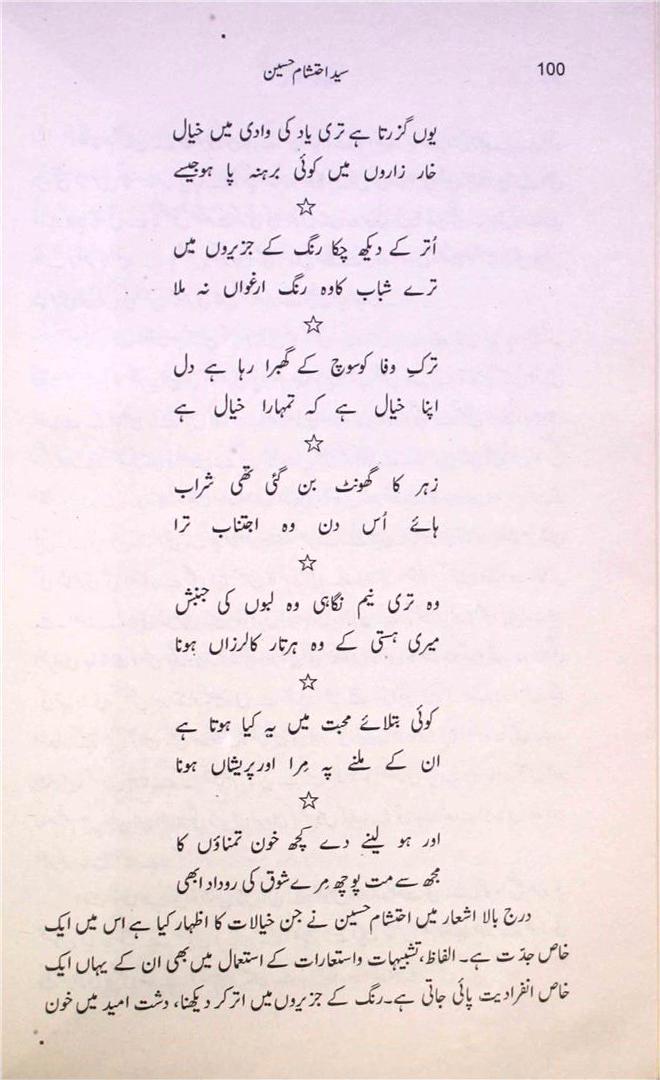 100
سید احتشام حسین
یوں گزرتا ہے تری یاد کی وادی میں خیال
خار زاروں میں کوئی برہنہ پا ہوجیسے
☆
اُتر کے دیکھ چکا رنگ کے جزیروں میں
ترے شباب کاوہ رنگ ارغواں نہ ملا
☆
ترکِ وفا کوسوچ کے گھبرا رہا ہے دل
اپنا خیال ہے کہ تمہارا خیال ہے
☆
زہر کا گھونٹ بن گئی تھی شراب
ہائے اُس دن وہ اجتناب ترا
☆
وہ تری نیم نگاہی وہ لبوں کی جنبش
میری ہستی کے وہ ہرتار کالرزاں ہونا
☆
کوئی بتلائے محبت میں یہ کیا ہوتا ہے
ان کے ملنے پہ مِرا اورپریشاں ہونا
☆
اور ہو لینے دے کچھ خون تمناؤں کا
مجھ سے مت پوچھ مِرے شوق کی روداد ابھی
درج بالا اشعار میں احتشام حسین نے جن خیالات کا اظہار کیا ہے اس میں ایک
خاص جدّت ہے۔ الفاظ، تشبیہات واستعارات کے استعمال میں بھی ان کے یہاں ایک
خاص انفرادیت پائی جاتی ہے۔رنگ کے جزیروں میں اتر کر دیکھنا، دشت امید میں خون